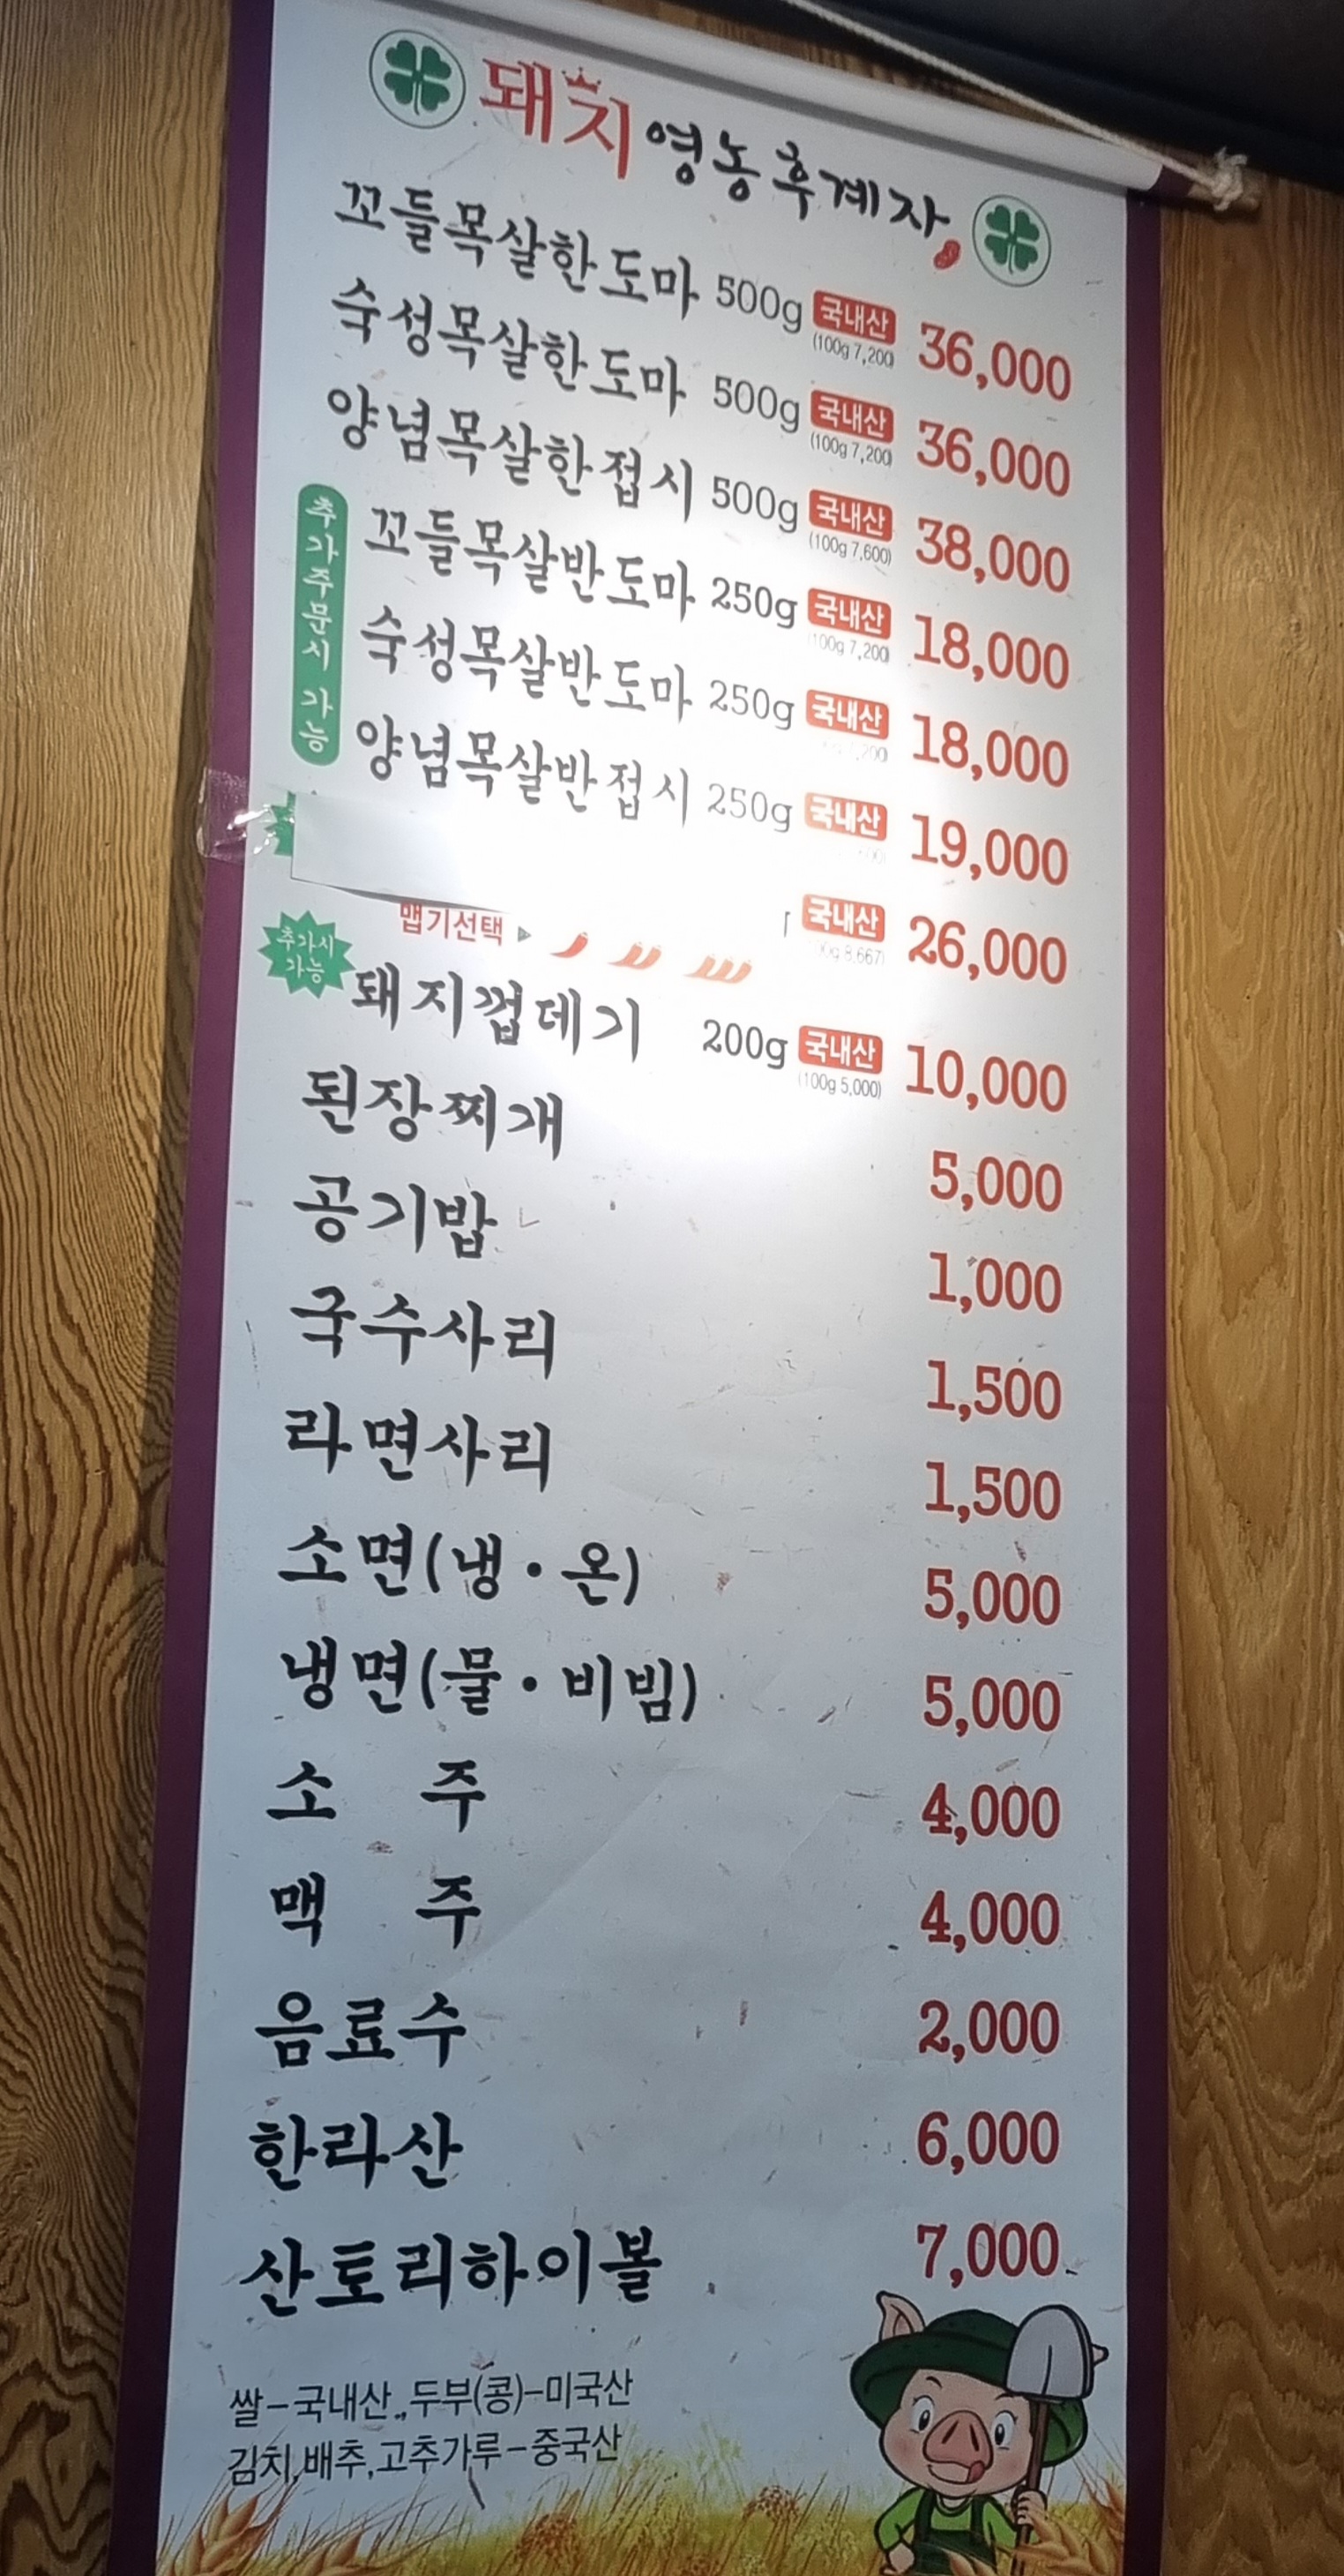 돼지영농후계자
꼬들목살한도마 500g 국내산 36,000
(100g 7,200)
숙성목살한도마 500g 국내산 36,000
(100g 7,200)
양념목살한접시 500g 국내산 38,000
(100g 7,600)
추가주문시 가능
꼬들목살반도마 250g 국내산 18,000
(100g 7,200)
숙성목살반도마 250g 국내산 18,000
양념목살반접시 250g 국내산 19,000
국내산 26,000
맵기선택
추가시
가능
돼지껍데기 200g 국내산 10,000
(100g 5,000)
된장찌개 5,000
공기밥 1,000
국수사리 1,500
라면사리 1,500
소면(냉·온) 5,000
냉면(물·비빔) 5,000
소 주 4,000
맥 주 4,000
음료수 2,000
한라산 6,000
산토리하이볼 7,000
쌀-국내산., 두부(콩)-미국산
김치,배추,고추가루-중국산